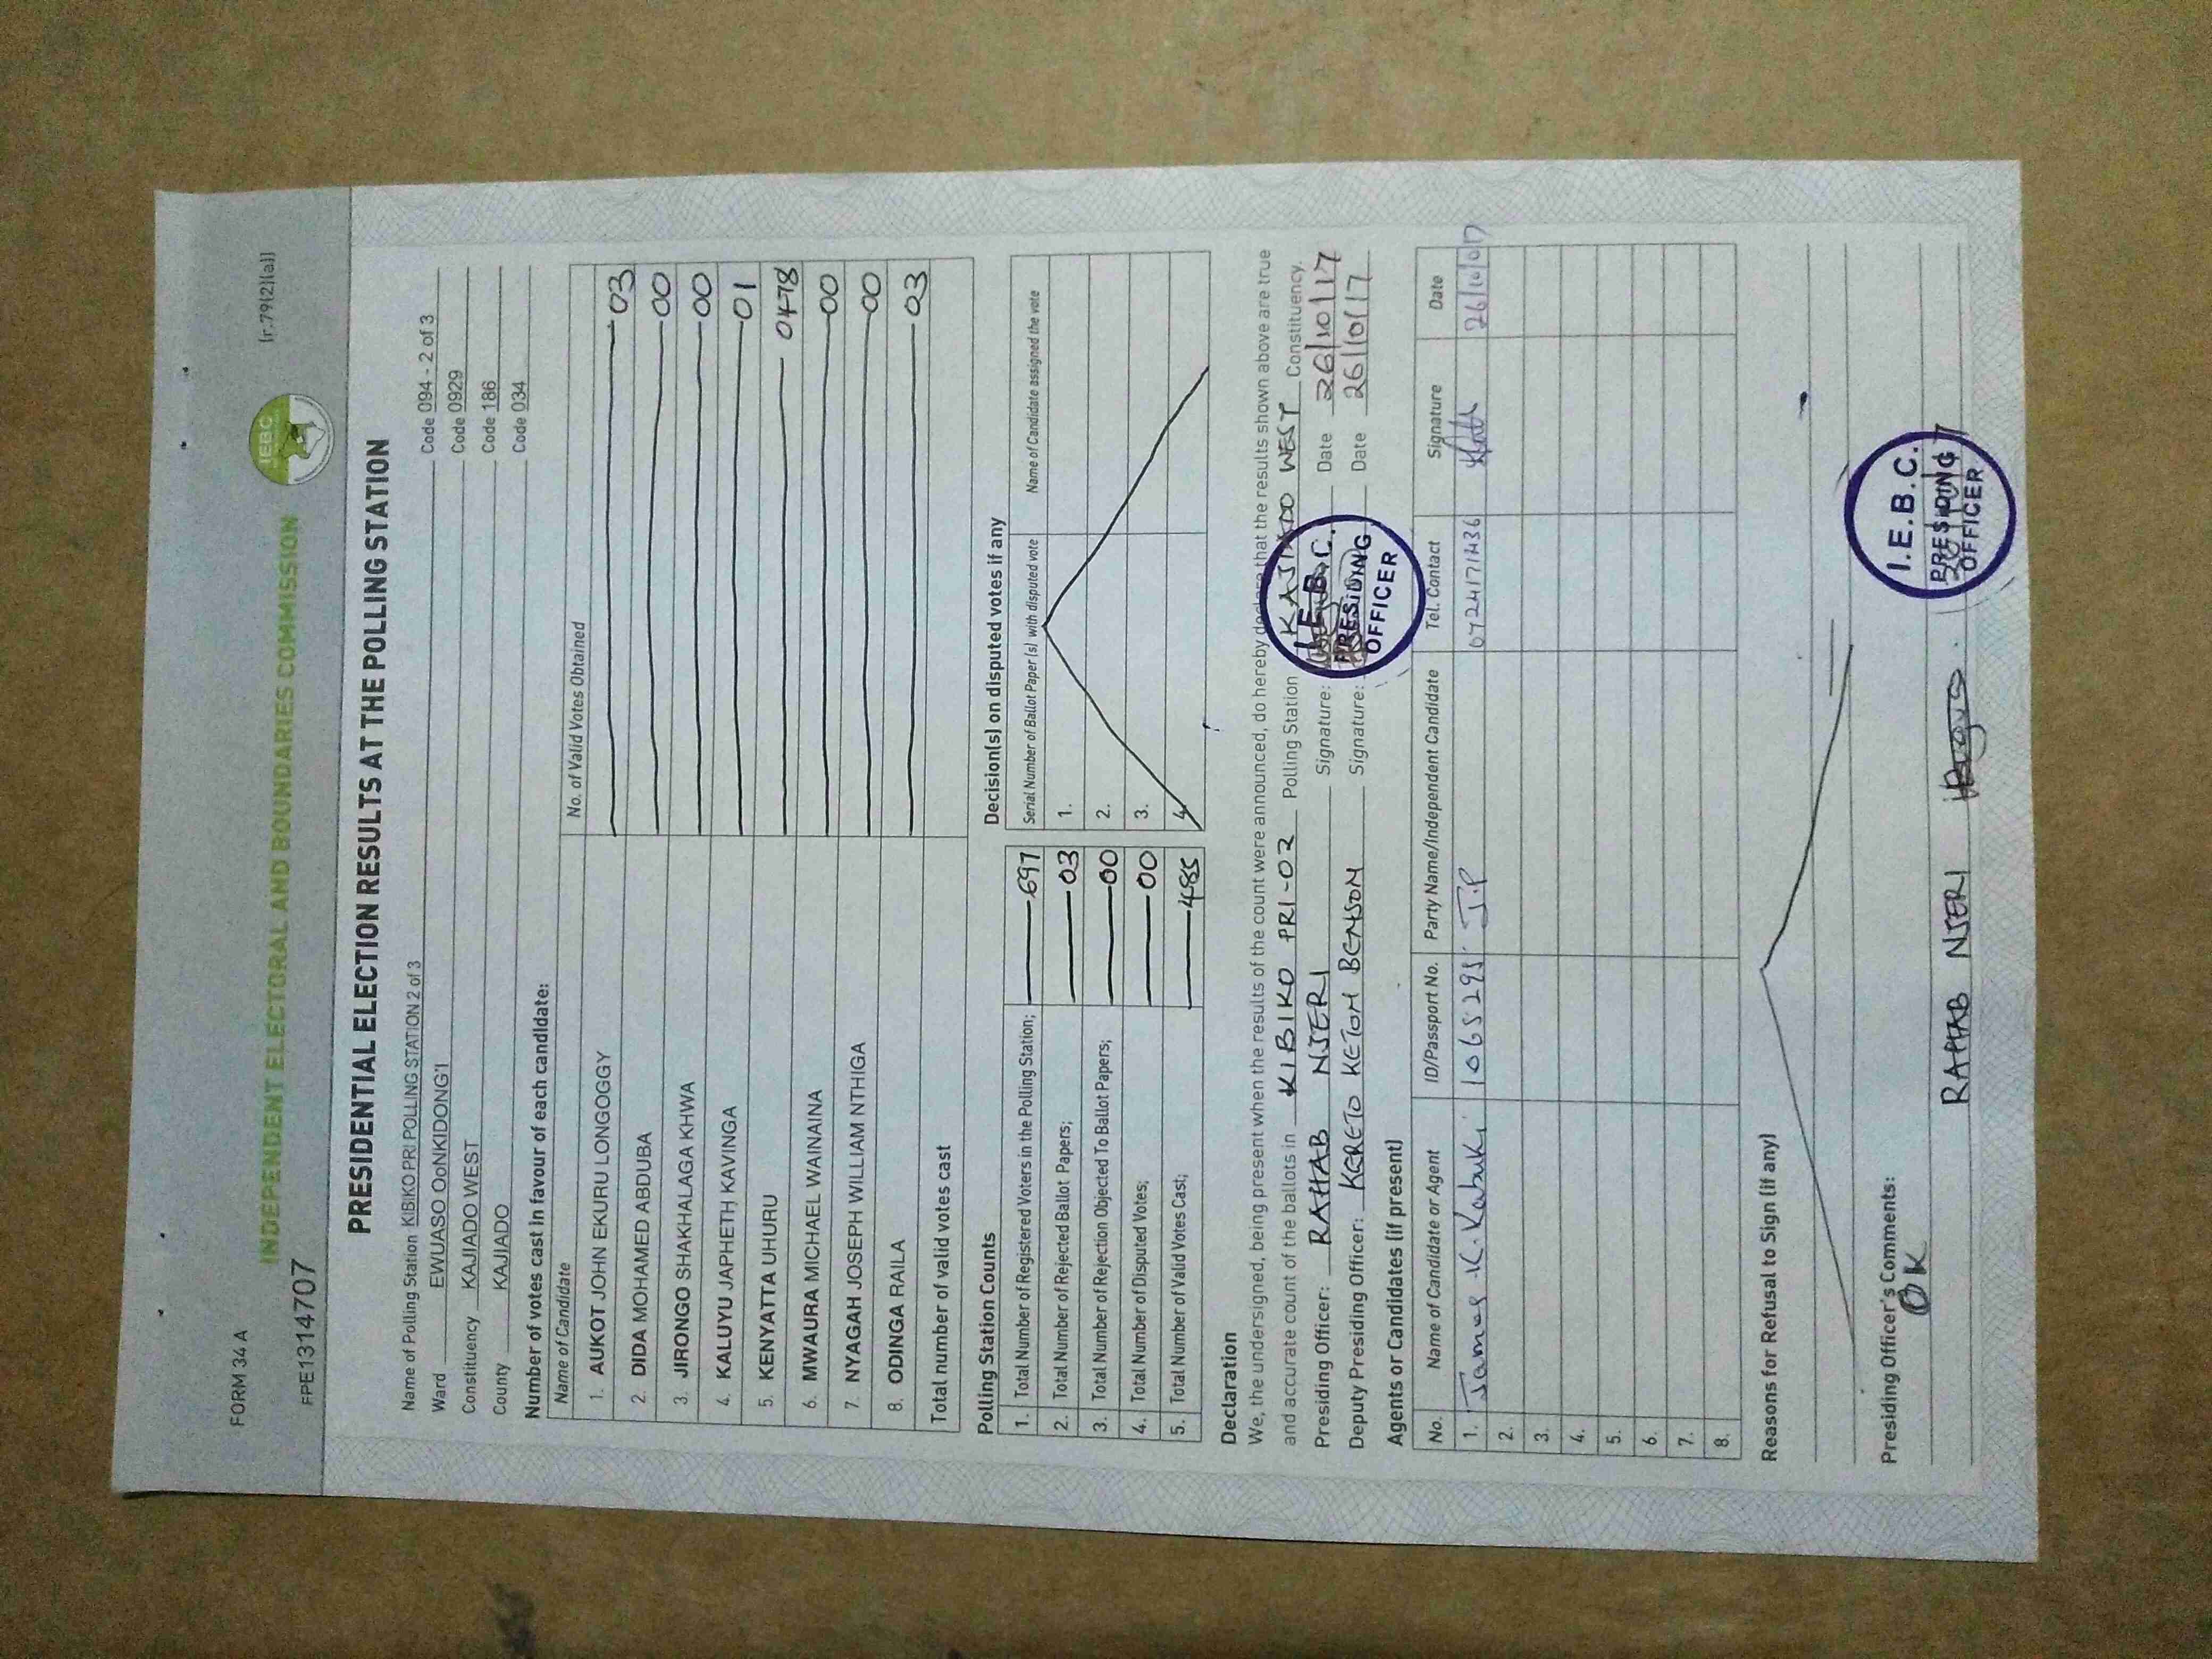 FORM 34 A
(r.79(2)(a))
INDEPENDENT ELECTORAL AND BOUNDARIES COMMISSION
IEBC
FPE1314707
PRESIDENTIAL ELECTION RESULTS AT THE POLLING STATION
Name of Polling Station KIBIKO PRI POLLING STATION 2 of 3 Code 094 - 2 of 3
Ward EWUASO OoNKIDONG'I Code 0929
Constituency KAJIADO WEST Code 186
County KAJIADO Code 034
Number of votes cast in favour of each candidate:
Name of Candidate No. of Valid Votes Obtained
1. AUKOT JOHN EKURU LONGOGGY 03
2. DIDA MOHAMED ABDUBA 00
3. JIRONGO SHAKHALAGA KHWA 00
4. KALUYU JAPHETH KAVINGA 01
5. KENYATTA UHURU 0478
6. MWAURA MICHAEL WAINAINA 00
7. NYAGAH JOSEPH WILLIAM NTHIGA 00
8. ODINGA RAILA 03
Total number of valid votes cast
Polling Station Counts
1. Total Number of Registered Voters in the Polling Station; 697
2. Total Number of Rejected Ballot Papers; 03
3. Total Number of Rejection Objected To Ballot Papers; 00
4. Total Number of Disputed Votes; 00
5. Total Number of Valid Votes Cast; 485
Decision(s) on disputed votes if any
Serial Number of Ballot Paper(s) with disputed vote Name of Candidate assigned the vote
1.
2.
3.
4.
Declaration
We, the undersigned, being present when the results of the count were announced, do hereby declare that the results shown above are true
and accurate count of the ballots in KIBIKO PRI-02 Polling Station KAJIADO WEST Constituency.
Presiding Officer: RAHAB NJERI Signature: Date 26/10/17
Deputy Presiding Officer: KERETO KETOM BENSON Signature: Date 26/10/17
I.E.B.C.
PRESIDING
OFFICER
Agents or Candidates (if present)
No. Name of Candidate or Agent ID/Passport No. Party Name/Independent Candidate Tel. Contact Signature Date
1. James K. Kabuki 1065295 J.P 0724171436 26/10/017
2.
3.
4.
5.
6.
7.
8.
Reasons for Refusal to Sign (if any)
Presiding Officer's Comments:
OK
RAHAB NJERI
I.E.B.C.
PRESIDING
OFFICER